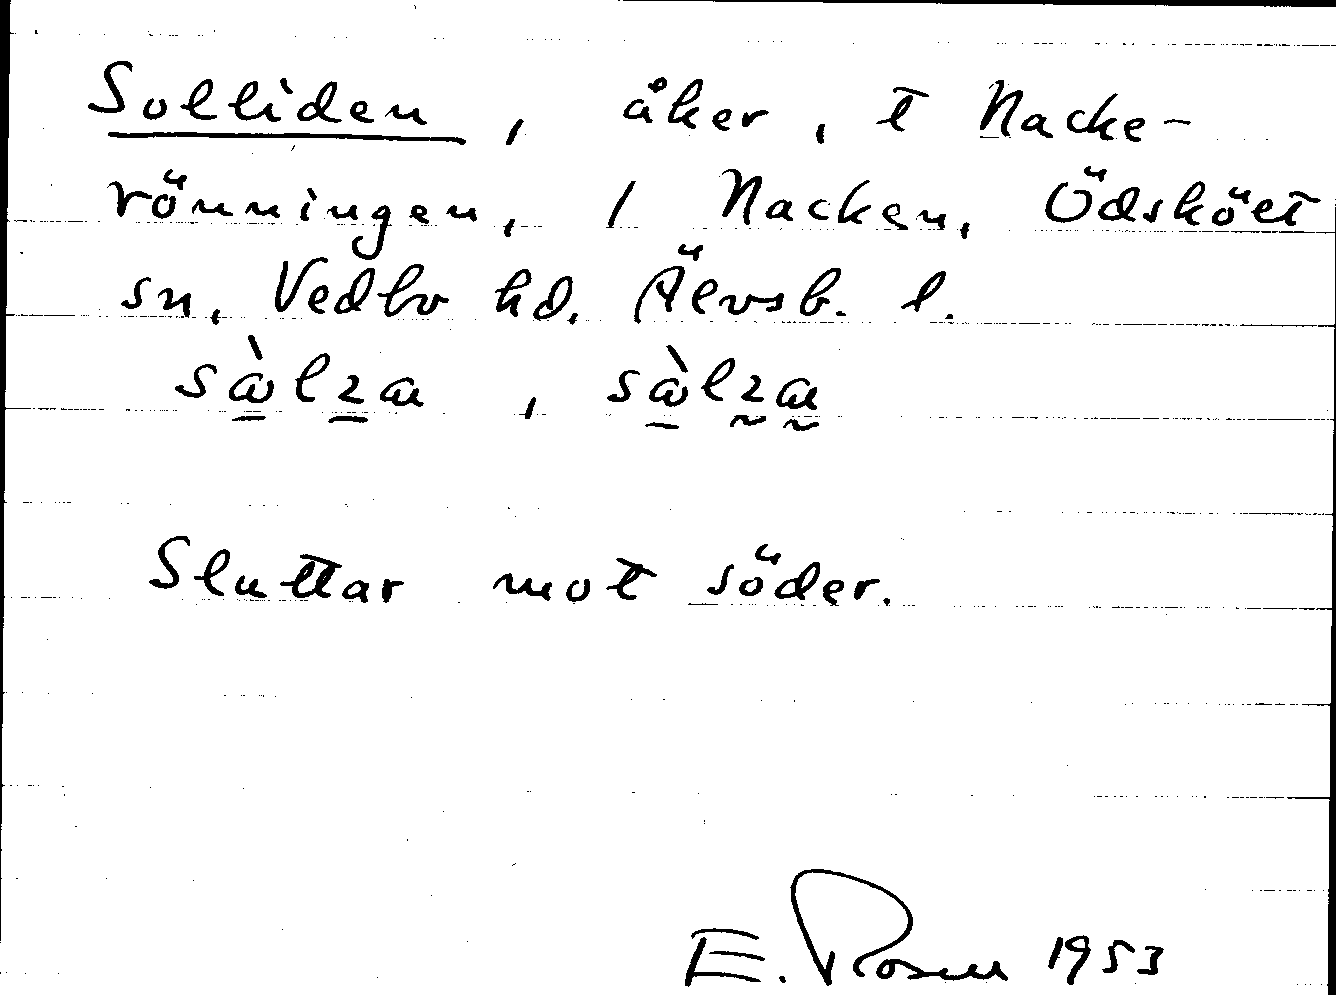 Solliden, åker, t Nacke-
rönningen, 1 Nacken, Ödsköet
sn, Vedbo hd. Älvsb. l.
Sluttar mot söder.
E. Rosen 1953